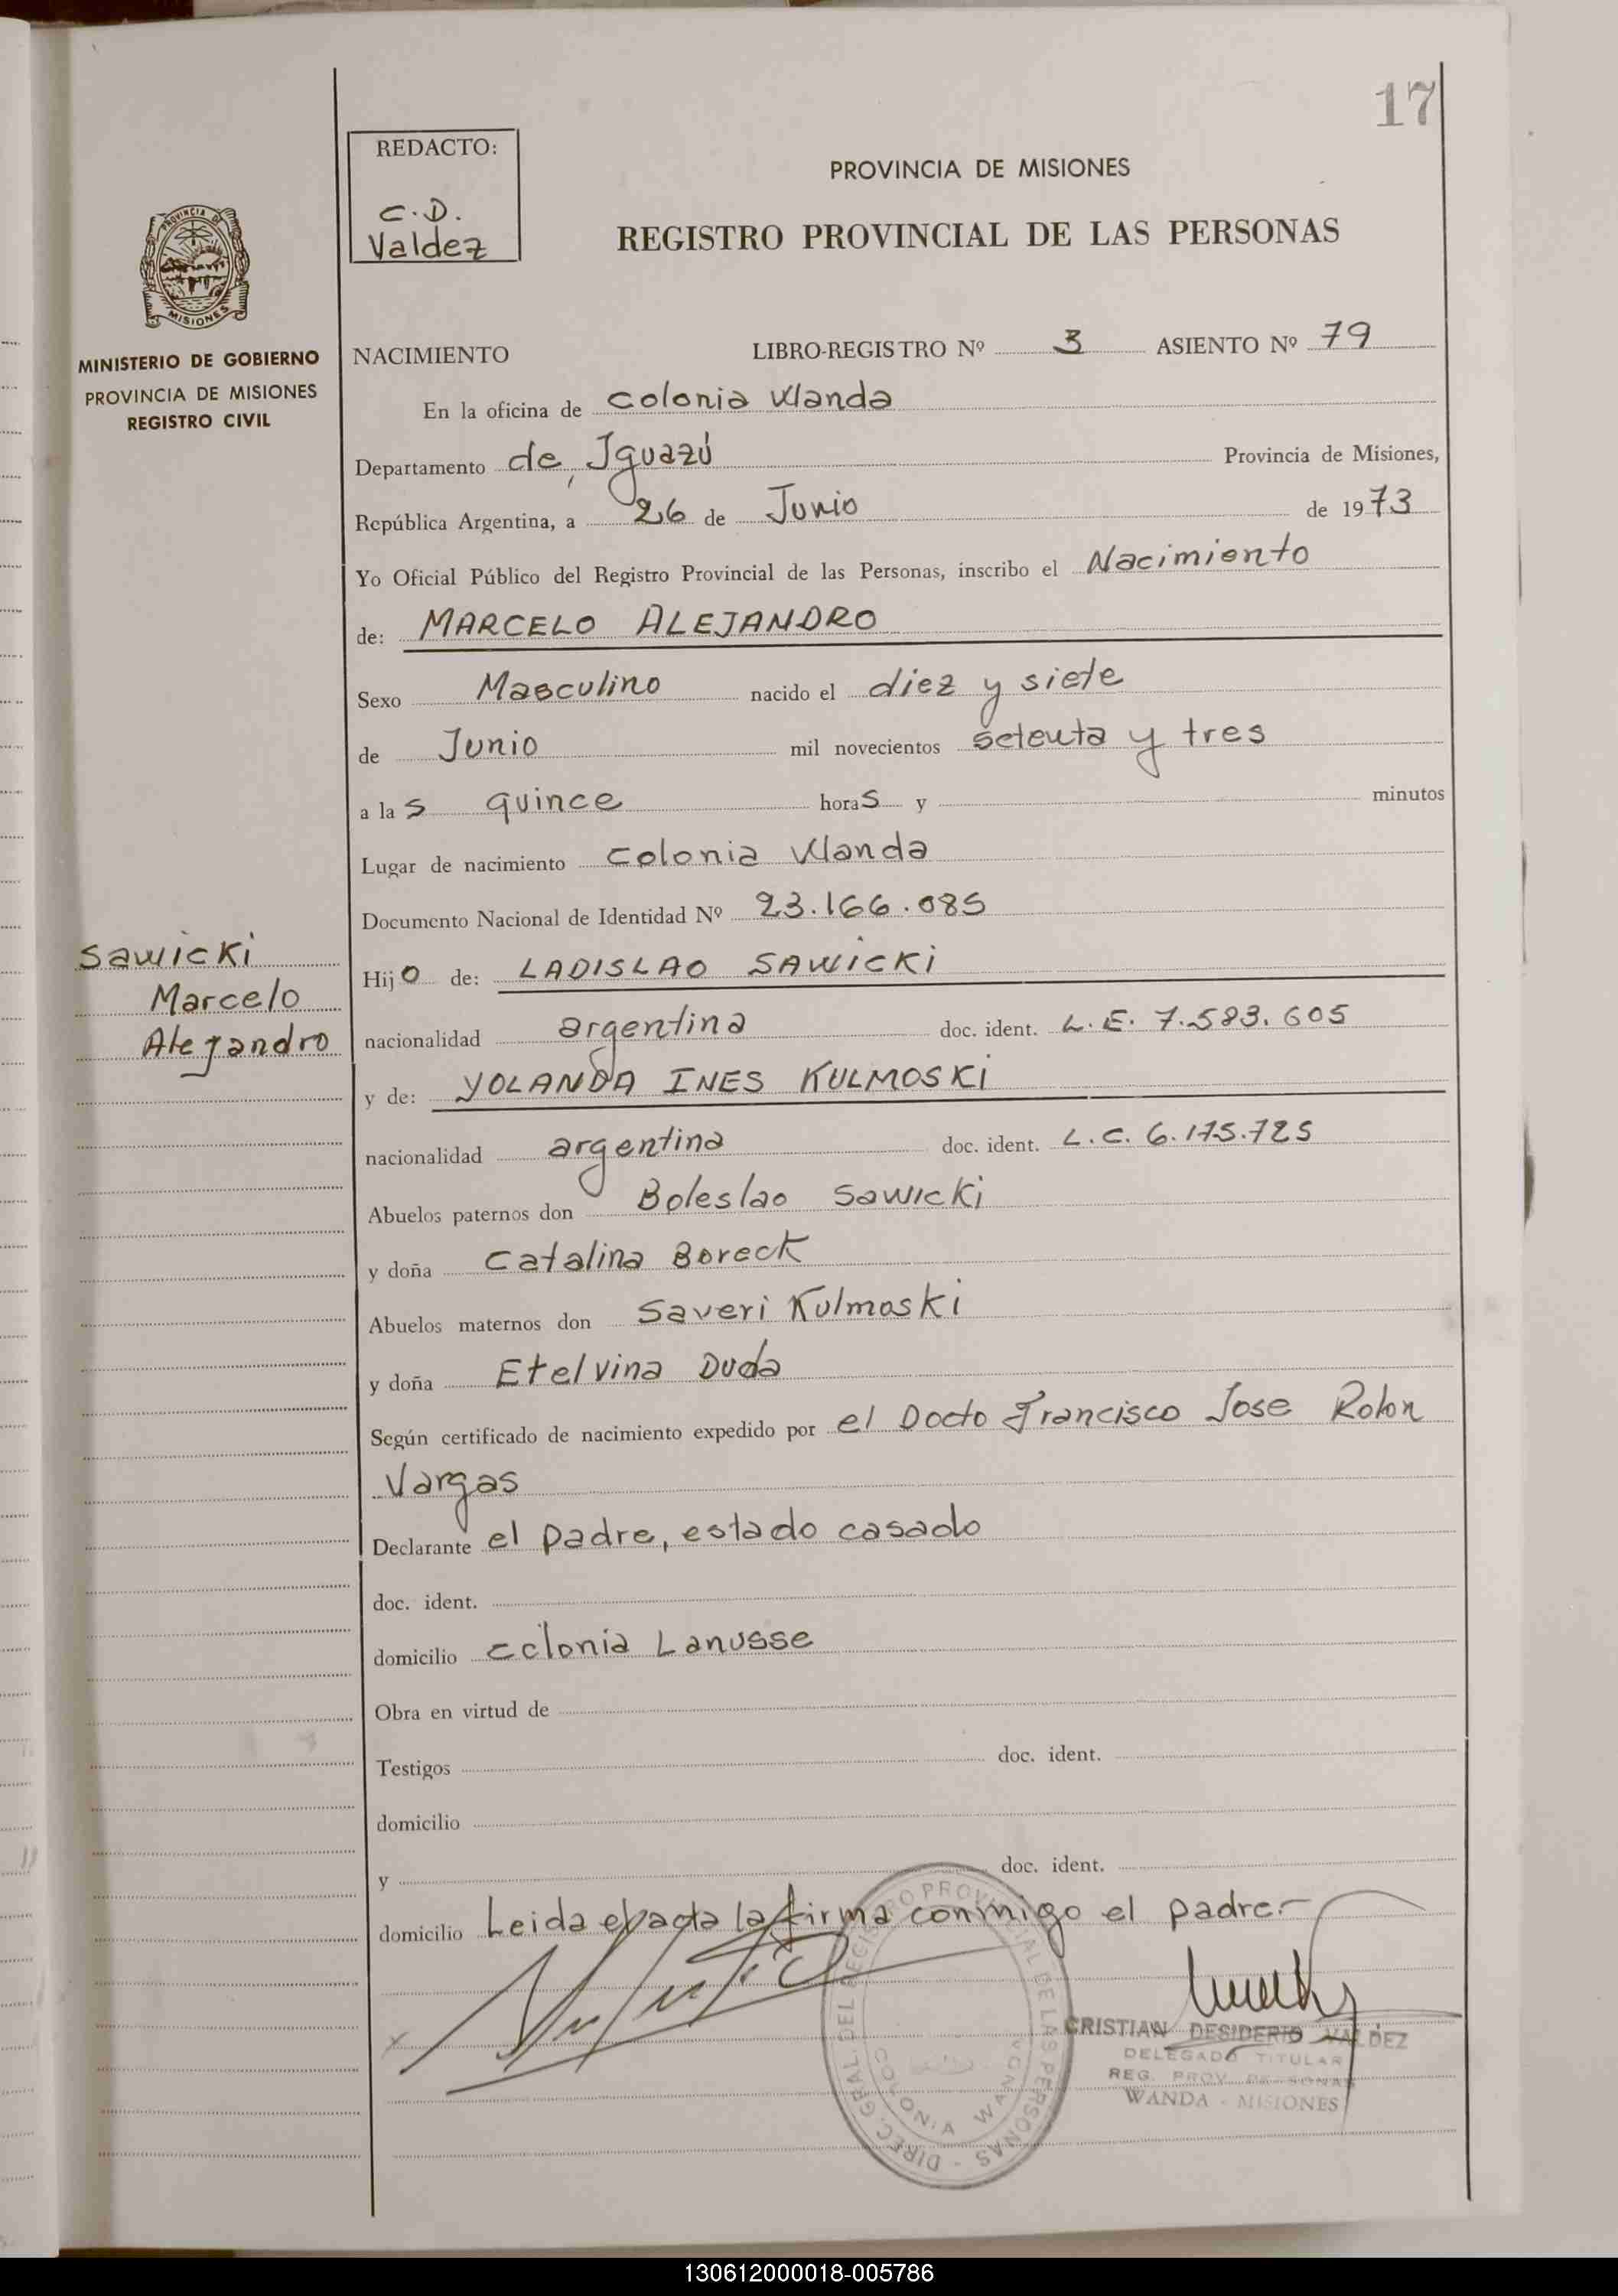 17
REDACTO:
C.D.
Valdez
PROVINCIA DE MISIONES
REGISTRO PROVINCIAL DE LAS PERSONAS
PROVINCIA DE
MISIONES
MINISTERIO DE GOBIERNO
PROVINCIA DE MISIONES
REGISTRO CIVIL
NACIMIENTO LIBRO-REGISTRO Nº 3 ASIENTO Nº 79
En la oficina de Colonia Wanda
Departamento de Iguazú Provincia de Misiones,
República Argentina, a 26 de Junio de 1973
Yo Oficial Público del Registro Provincial de las Personas, inscribo el Nacimiento
de: MARCELO ALEJANDRO
Sexo Masculino nacido el diez y siete
de Junio mil novecientos setenta y tres
a la s quince horas y minutos
Lugar de nacimiento Colonia Wanda
Documento Nacional de Identidad Nº 23.166.085
Sawicki
Marcelo
Alejandro
Hijo de: LADISLAO SAWICKI
nacionalidad argentina doc. ident. L.E. 7.583.605
y de: YOLANDA INES KULMOSKI
nacionalidad argentina doc. ident. L.C. 6.175.725
Abuelos paternos don Boleslao Sawicki
y doña Catalina Boreck
Abuelos maternos don Saveri Kulmoski
y doña Etelvina Duda
Según certificado de nacimiento expedido por el Docto Francisco Jose Rolon
Vargas
Declarante el padre, estado casado
doc. ident.
domicilio Colonia Lanusse
Obra en virtud de
Testigos doc. ident.
domicilio
y doc. ident.
domicilio Leida el acta la firma conmigo el padre.-
DIREC. GRAL. DEL REGISTRO PROVINCIAL DE LAS PERSONAS -
COLONIA WANDA
CRISTIAN DESIDERIO VALDEZ
DELEGADO TITULAR
REG. PROV. PERSONAS
WANDA - MISIONES
130612000018-005786